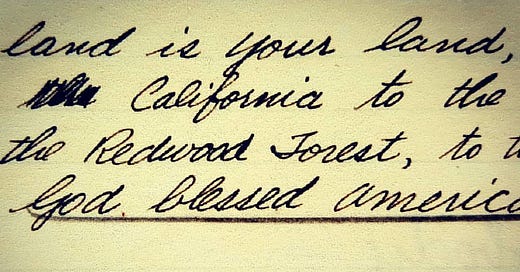 land is your land,
California to the
the Redwood Forest, to t
God blessed America